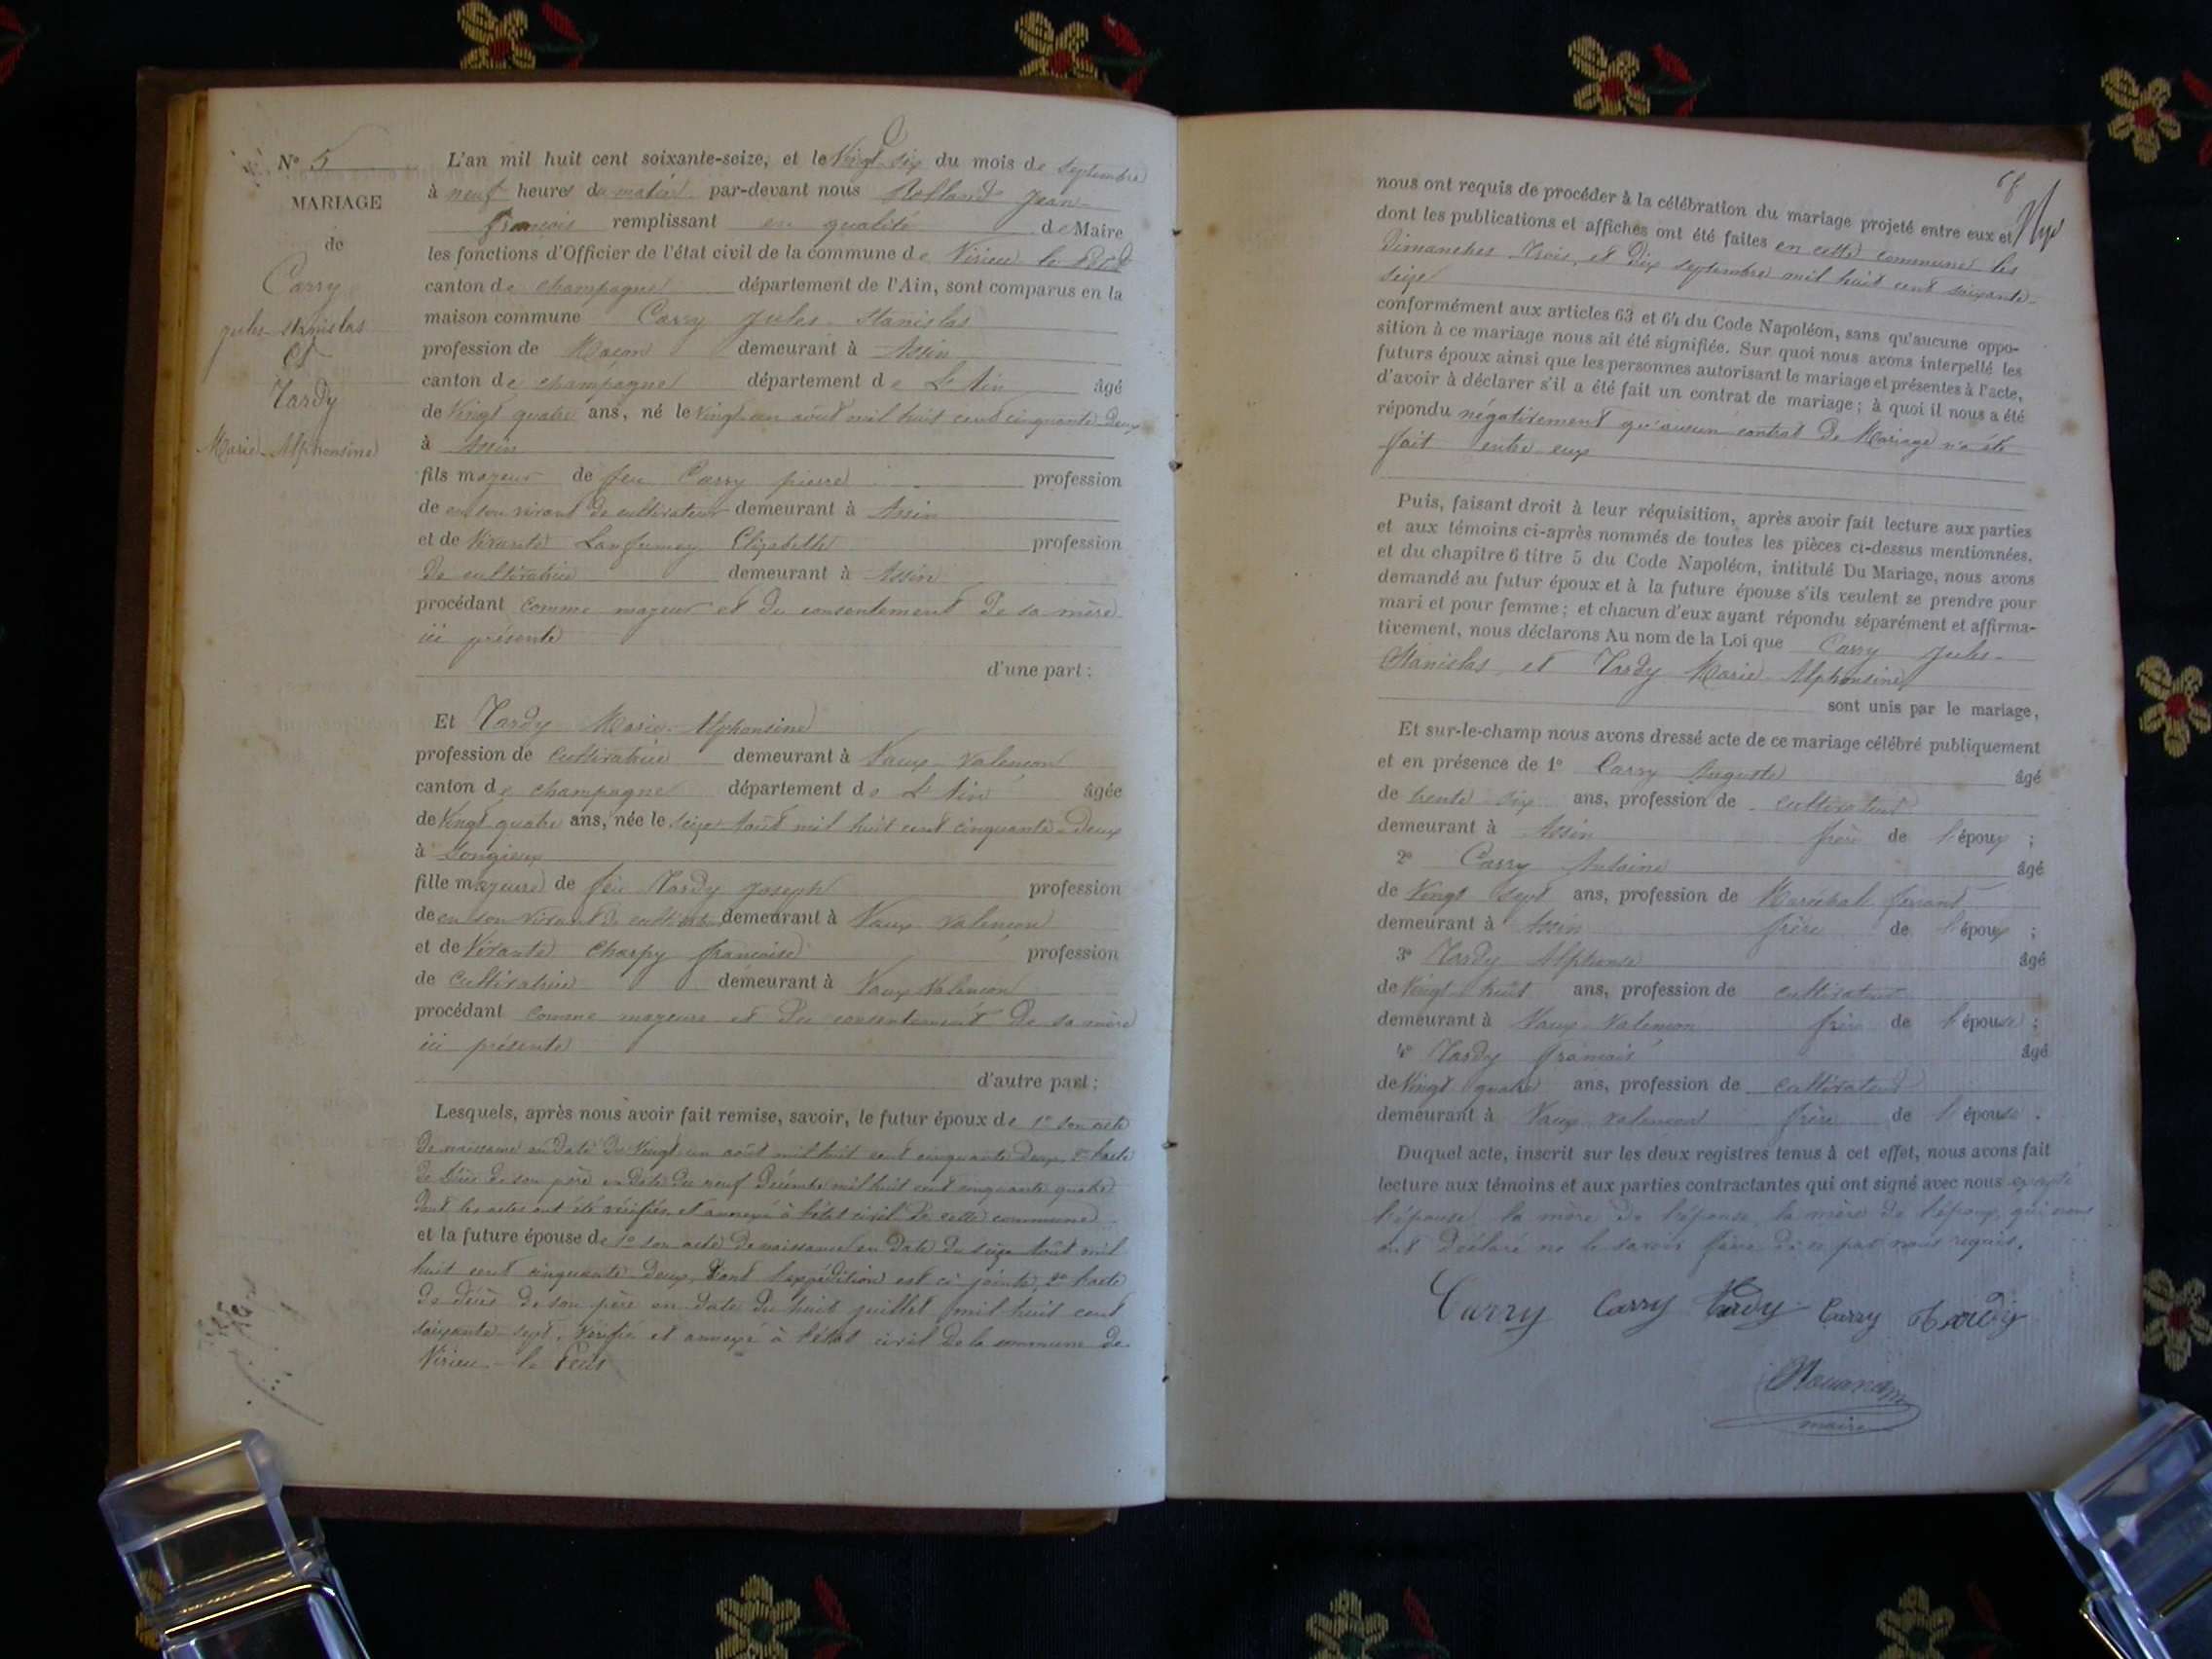 N° 5
MARIAGE
de
Carry
jules stanislas
et
Tardy
Marie Alphonsine
L'an mil huit cent soixante-seize, et le Vingt six du mois de septembre
à neuf heures du matin par-devant nous Rolland Jean
françois remplissant en qualité de Maire
les fonctions d'Officier de l'état civil de la commune de Virieu le Petit
canton de champagne département de l'Ain, sont comparus en la
maison commune Carry Jules Stanislas
profession de Maçon demeurant à Assin
canton de champagne département de L'Ain âgé
de Vingt quatre ans, né le vingt un août mil huit cent cinquante deux
à Assin
fils majeur de feu Carry pierre profession
de en son vivant de cultivateur demeurant à Assin
et de Vivante Lanfumey Elizabeth profession
de cultivatrice demeurant à Assin
procédant comme majeur et du consentement de sa mère
ici présente
d'une part :
Et Tardy Marie Alphonsine
profession de cultivatrice demeurant à Vaux Valencon
canton de champagne département de L'Ain âgée
de Vingt quatre ans, née le seize Août mil huit cent cinquante deux
à Songieux
fille majeure de feu Tardy Joseph profession
de en son vivant de cultivateur demeurant à Vaux Valencon
et de Vivante Charpy françoise profession
de cultivatrice demeurant à Vaux Valencon
procédant comme majeure et du consentement de sa mère
ici présente
d'autre part :
Lesquels, après nous avoir fait remise, savoir, le futur époux de 1° son acte
de naissance en date du Vingt un août mil huit cent cinquante deux, 2° l'acte
de décès de son père en date du neuf Décembre mil huit cent cinquante quatre
dont les actes ont été vérifiés et annexé à l'état civil de cette commune
et la future épouse de 1° son acte de naissance en date du seize Août mil
huit cent cinquante deux, dont l'expédition est ci jointe, 2° l'acte
de décès de son père en date du huit juillet mil huit cent
soixante sept, vérifié et annexé à l'état civil de la commune de
Virieu le Petit
68
nous ont requis de procéder à la célébration du mariage projeté entre eux et
dont les publications et affiches ont été faites en cette commune les
Dimanches trois et dix septembre mil huit cent soixante
seize
conformément aux articles 63 et 64 du Code Napoléon, sans qu'aucune oppo-
sition à ce mariage nous ait été signifiée. Sur quoi nous avons interpellé les
futurs époux ainsi que les personnes autorisant le mariage et présentes à l'acte,
d'avoir à déclarer s'il a été fait un contrat de mariage ; à quoi il nous a été
répondu négativement qu'aucun contrat de Mariage n'a été
fait entre eux
Puis, faisant droit à leur réquisition, après avoir fait lecture aux parties
et aux témoins ci-après nommés de toutes les pièces ci-dessus mentionnées,
et du chapitre 6 titre 5 du Code Napoléon, intitulé Du Mariage, nous avons
demandé au futur époux et à la future épouse s'ils veulent se prendre pour
mari et pour femme ; et chacun d'eux ayant répondu séparément et affirma-
tivement, nous déclarons Au nom de la Loi que Carry Jules
Stanislas et Tardy Marie Alphonsine
sont unis par le mariage,
Et sur-le-champ nous avons dressé acte de ce mariage célébré publiquement
et en présence de 1° Carry Auguste âgé
de trente six ans, profession de cultivateur
demeurant à Assin frère de l'époux ;
2° Carry Antoine âgé
de Vingt sept ans, profession de Maréchal ferrant
demeurant à Assin frère de l'époux ;
3° Tardy Alphonse âgé
de Vingt huit ans, profession de cultivateur
demeurant à Vaux Valencon frère de l'épouse ;
4° Tardy françois âgé
de Vingt quatre ans, profession de cultivateur
demeurant à Vaux valencon frère de l'épouse.
Duquel acte, inscrit sur les deux registres tenus à cet effet, nous avons fait
lecture aux témoins et aux parties contractantes qui ont signé avec nous excepté
l'épouse, la mère de l'épouse, la mère de l'époux, qui nous
ont Déclaré ne le savoir faire de ce par nous requis.
Carry Carry Tardy Carry Tardy
maire